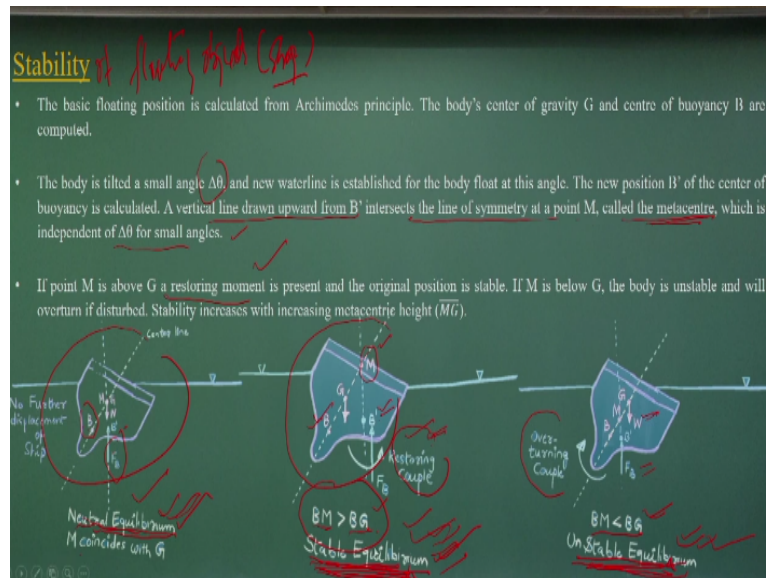 Stability of floating objects (ship)
• The basic floating position is calculated from Archimedes principle. The body's center of gravity G and centre of buoyancy B are
computed.
• The body is tilted a small angle Δθ, and new waterline is established for the body float at this angle. The new position B' of the center of
buoyancy is calculated. A vertical line drawn upward from B' intersects the line of symmetry at a point M, called the metacentre, which is
independent of Δθ for small angles.
• If point M is above G a restoring moment is present and the original position is stable. If M is below G, the body is unstable and will
overturn if disturbed. Stability increases with increasing metacentric height (MG).
Center line
No Further
displacement
of
Ship
M G
W
B
B'
F_B
Neutral Equilibrium
M coincides with G
M
G
B
B'
F_B
Restoring
Couple
BM > BG
Stable Equilibrium
Over-
turning
Couple
G
M
W
B
B'
F_B
BM < BG
UnStable Equilibrium